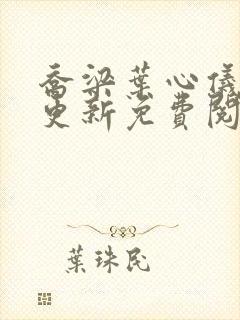 喬梁葉心儀
更新免費閱
葉珠民